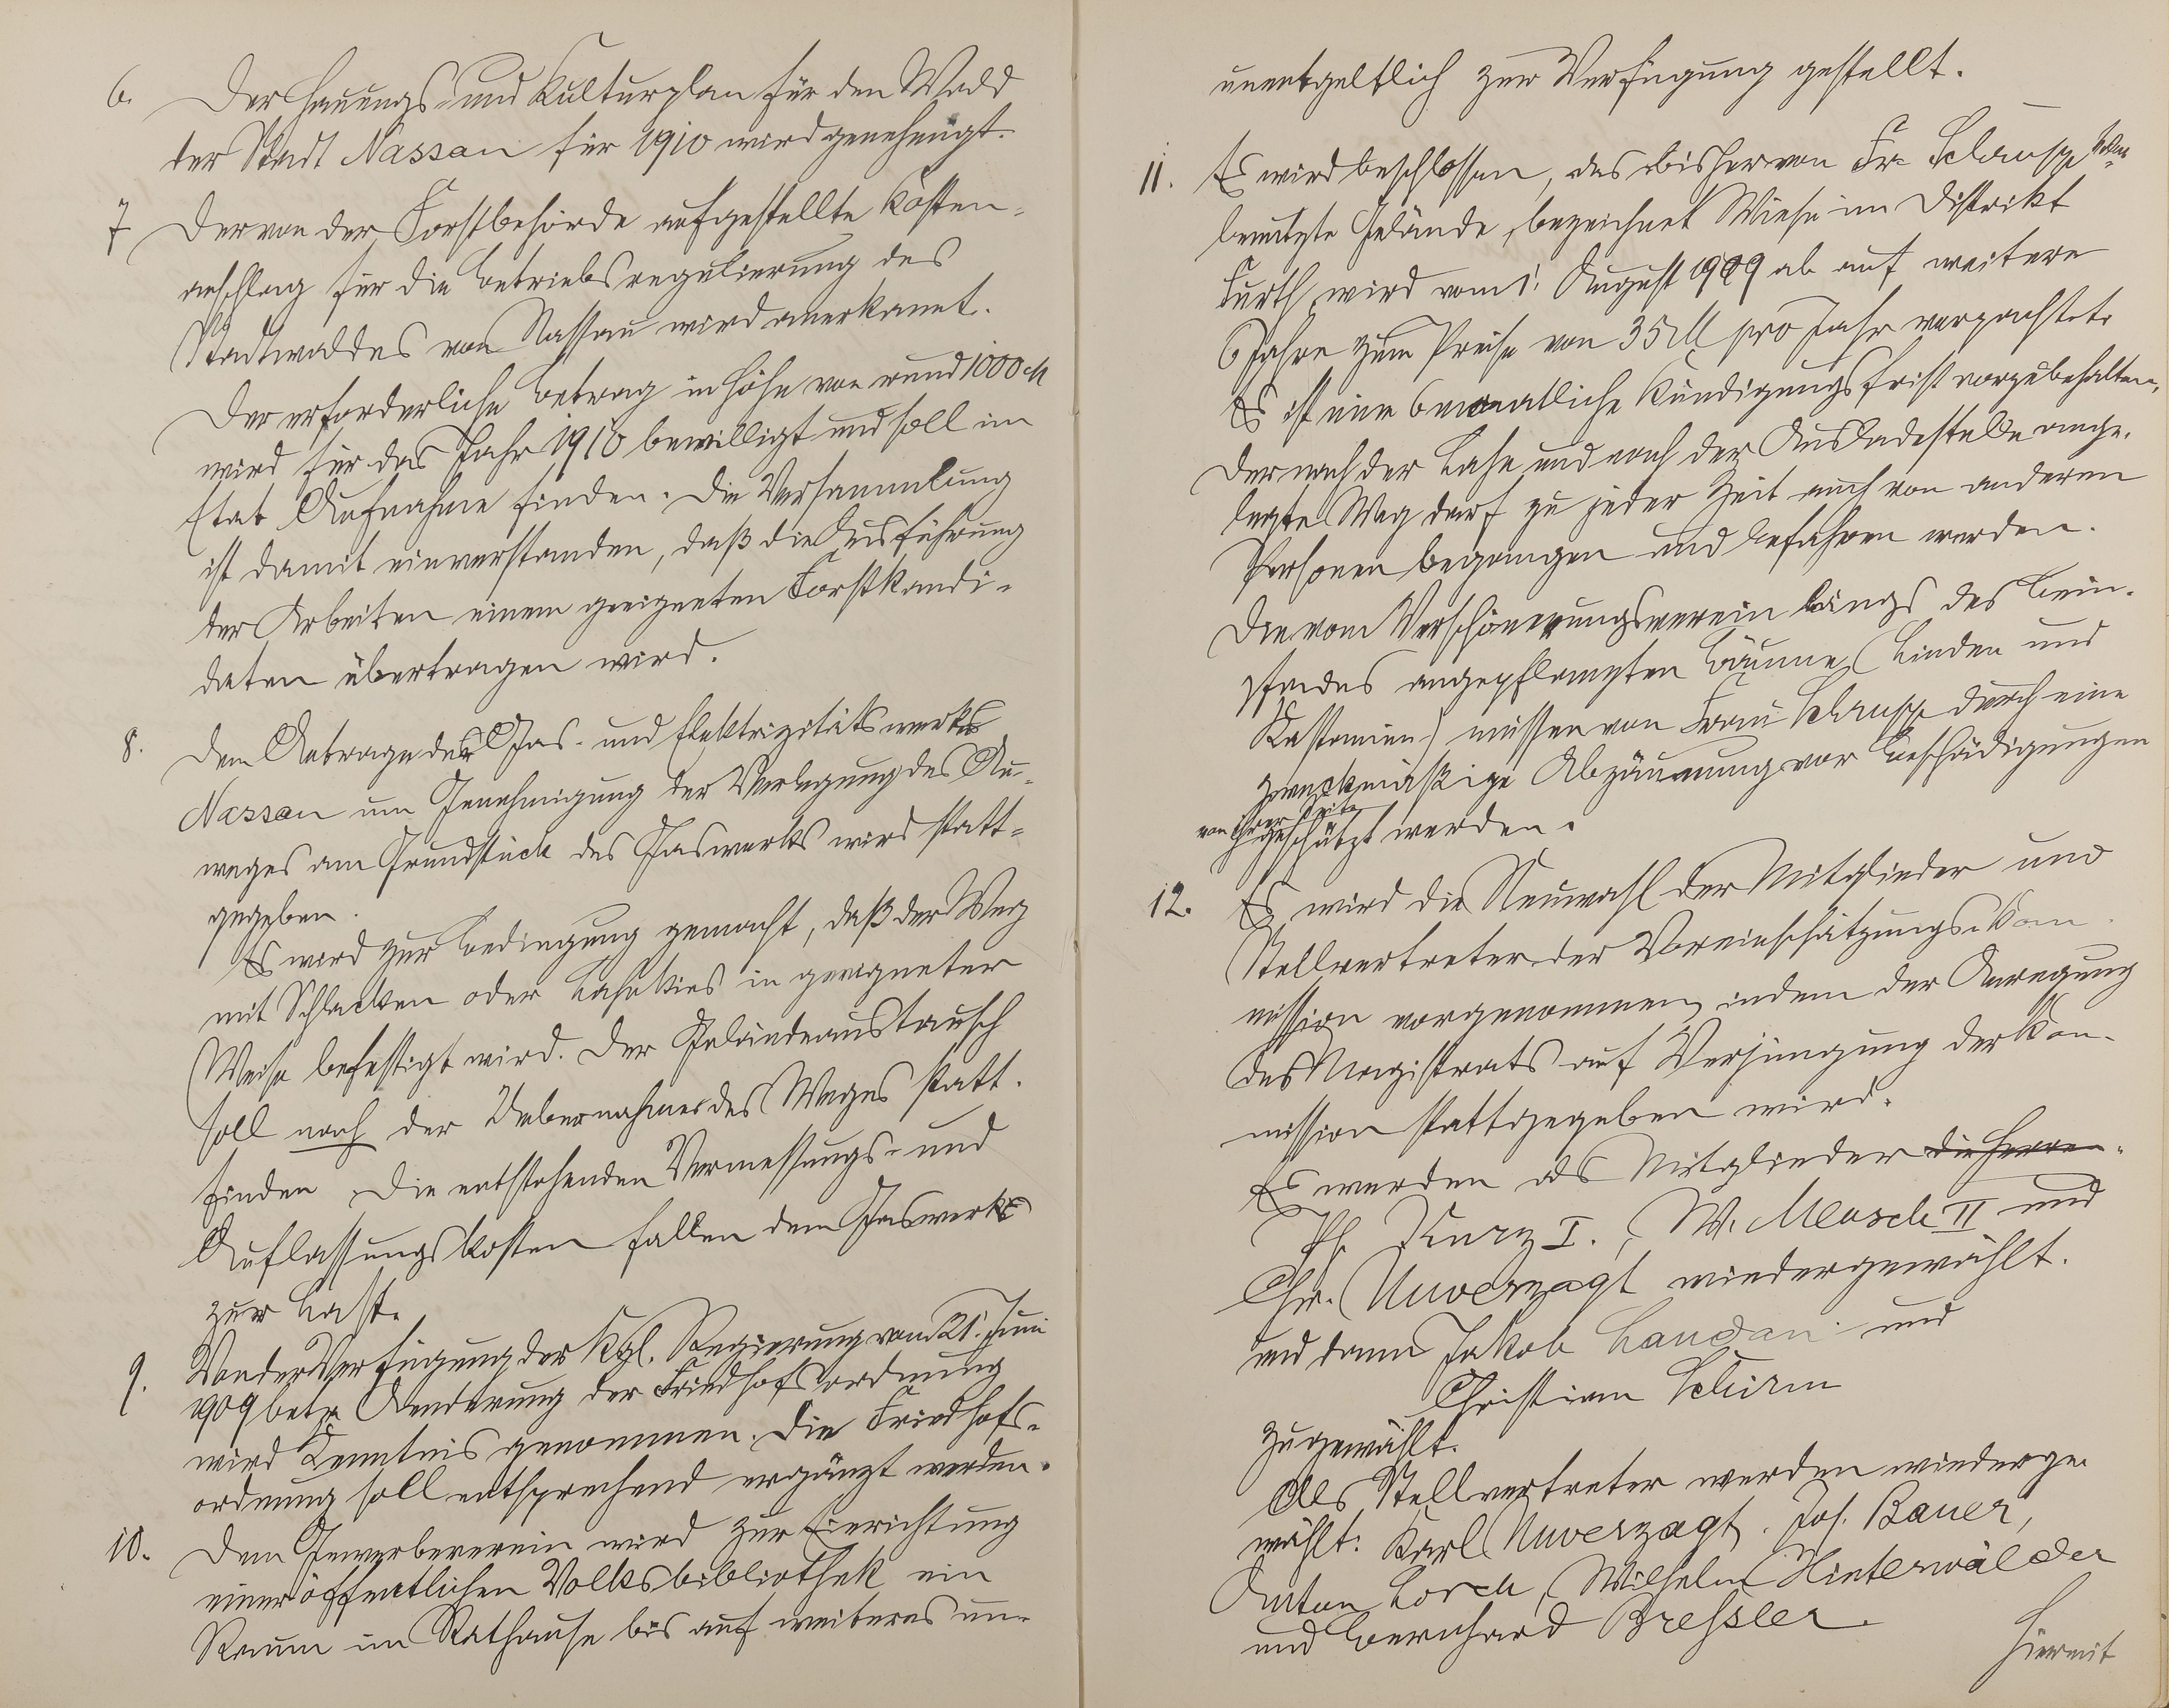 6. Der Hauungs- und Kulturplan für den Wald
der Stadt Nassau für 1910 wird genehmigt.
7 Der von der Forstbehörde aufgestellte Kosten-
anschlag für die Betriebsregulierung des
Stadtwaldes von Nassau wird anerkannt.
Der erforderliche Betrag in Höhe von rund 1000 M
wird für das Jahr 1910 bewilligt und soll im
Etat Aufnahme finden. Die Versammlung
ist damit einverstanden, daß die Ausführung
der Arbeiten einem geeigneten Forstkandi-
daten übertragen wird.
8. Dem Antrage des Gas- und Elektrizitätswerks
Nassau um Genehmigung der Verlegung des Au-
weges am Grundstück des Gaswerks wird statt-
gegeben.
Es wird zur Bedingung gemacht, daß der Weg
mit Schlacken oder Lahnkies in geeigneter
Weise befestigt wird. Der Geländeaustausch
soll nach der Uebernahme des Weges statt-
finden. Die entstehenden Vermessungs- und
Auflassungskosten fallen dem Gaswerk
zur Last.
9. Von der Verfügung der Kgl. Regierung vom 21. Juni
1909 betr. Aenderung der Friedhofsordnung
wird Kenntnis genommen. Die Friedhofs-
ordnung soll entsprechend ergänzt werden.
10. Dem Gewerbeverein wird zur Einrichtung
einer öffentlichen Volksbibliothek ein
Raum im Rathause bis auf weiteres un-
unentgeltlich zur Verfügung gestellt.
11. Es wird beschlossen, das bisher von Fr. Schrupp
benutzte Gelände, bezeichnet Wiese im Distrikt
Furth, wird vom 1. August 1909 ab auf weitere
6 Jahre zum Preise von 35 M pro Jahr verpachtet.
Es ist eine 6 monatliche Kündigungsfrist vorzubehalten.
Der nach der Lahn und nach der Ausladestelle ange-
legte Weg darf zu jeder Zeit auch von anderen
Personen begangen und befahren werden.
Die vom Verschönerungsverein längs des Lein-
pfades angepflanzten Bäume (Linden und
Kastanien) müssen von Frau Schrupp durch eine
zweckmäßige Abzäunung vor Beschädigungen
von ihrer Seite
geschützt werden.
12. Es wird die Neuwahl der Mitglieder und
Stellvertreter der Voreinschätzungskom-
mission vorgenommen, indem der Anregung
des Magistrats auf Verjüngung der Kom-
mission stattgegeben wird.
Es werden als Mitglieder die Herren
Ph. Kurz I., W. Meusch II und
Chr. Unverzagt wiedergewählt.
und dann Jakob Landau und
Christian Schirm
zugewählt.
Als Stellvertreter werden wiederge-
wählt: Karl Unverzagt, Jos. Bauer,
Anton Lorch, Wilhelm Hinterwälder
und Bernhard Bressler.
Hiermit